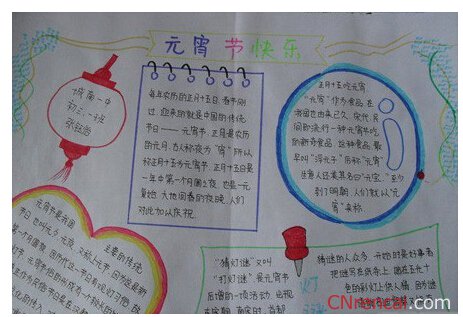 元宵节快乐
城南一中
初三、一班
每年农历的正月十五日,春节刚
过,迎来的就是中国的传统
节日——元宵节。正月是农历
的元月,古人称夜为“宵”所以
称正月十五为元宵节。正月十五日是
一年中第一个月圆之夜,也是一元
复始,大地回春的夜晚,人们
对此加以庆祝。
正月十五吃元宵
“元宵”作为食品,在
我国也由来已久。宋代,民
间即流行一种元宵节吃
的新奇食品。这种食品,最
早叫“浮元子”后称“元宵”
生意人还美其名曰“元宝”。
到了明朝,人们就以“元
宵”来称
元宵节是我国
主要的传统
节日,也叫元夕、元夜,又称上元节,因为这是新
年第一个月圆夜
“猜灯谜”又叫
“打灯谜”是元宵节
后增的一项活动,出现
猜谜的人众多。开始时是好事者
把谜写在纸条上,贴在五光十
色的彩灯上供人猜。因为谜
CNrencai.com